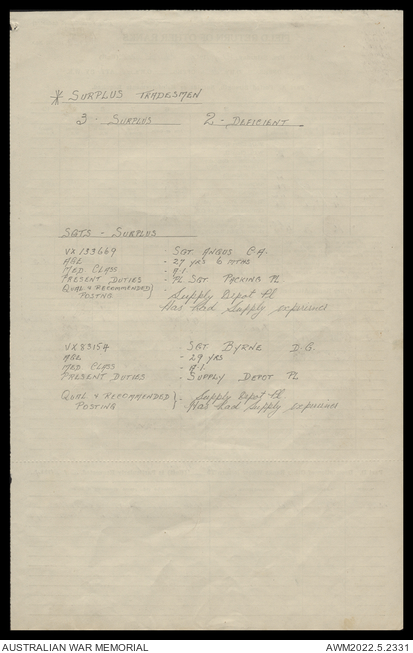 * SURPLUS TRADESMEN
3 - SURPLUS 2 - DEFICIENT
SGTS - SURPLUS
VX 133669 - SGT ANGUS C.A.
AGE - 27 YRS 6 MTHS
MED CLASS - A.1.
PRESENT DUTIES - PL SGT PACKING PL
QUAL & RECOMMENDED } - Supply Depot Pl
POSTNG Has had supply experience
VX 83154 SGT BYRNE D.G.
AGE - 29 YRS
MED CLASS - A.1.
PRESENT DUTIES - SUPPLY DEPOT PL
QUAL & RECOMMENDED } - Supply Depot Pl
POSTING - Has had supply experience
AUSTRALIAN WAR MEMORIAL AWM2022.5.2331